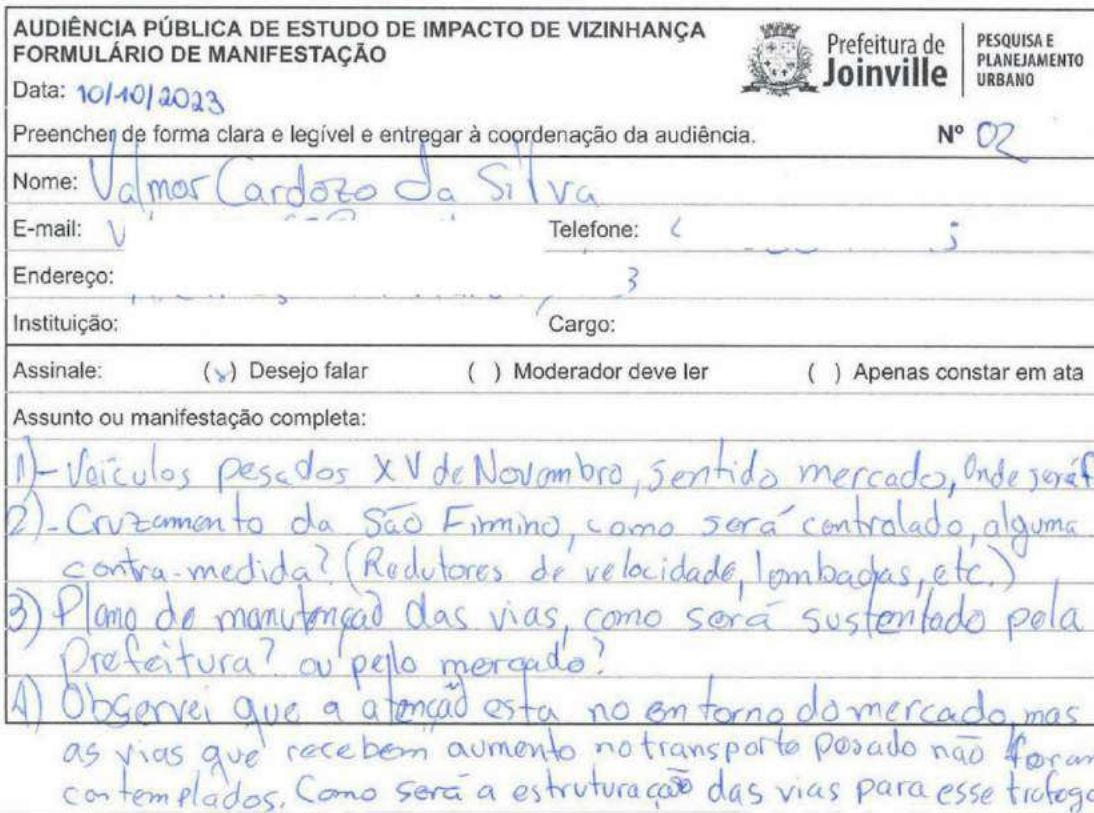 AUDIÊNCIA PÚBLICA DE ESTUDO DE IMPACTO DE VIZINHANÇA
FORMULÁRIO DE MANIFESTAÇÃO
Prefeitura de Joinville
PESQUISA E PLANEJAMENTO URBANO
Data: 10/10/2023
Preencher de forma clara e legível e entregar à coordenação da audiência. Nº 02
Nome: Valmor Cardozo da Silva
E-mail: Telefone:
Endereço:
Instituição: Cargo:
Assinale: (x) Desejo falar ( ) Moderador deve ler ( ) Apenas constar em ata
Assunto ou manifestação completa:
1)- Veículos pesados XV de Novembro, sentido mercado, Onde será
2)- Cruzamento da São Firmino, como será controlado, alguma
contra-medida? (Redutores de velocidade, lombadas, etc.)
3) Plano de manutençaõ das vias, como será sustentado pela
Prefeitura? ou pelo mercado?
4) Observei que a atençaõ esta no entorno do mercado, mas
as vias que recebem aumento no transporte pesado não foram
contemplados. Como será a estruturação das vias para esse trafego